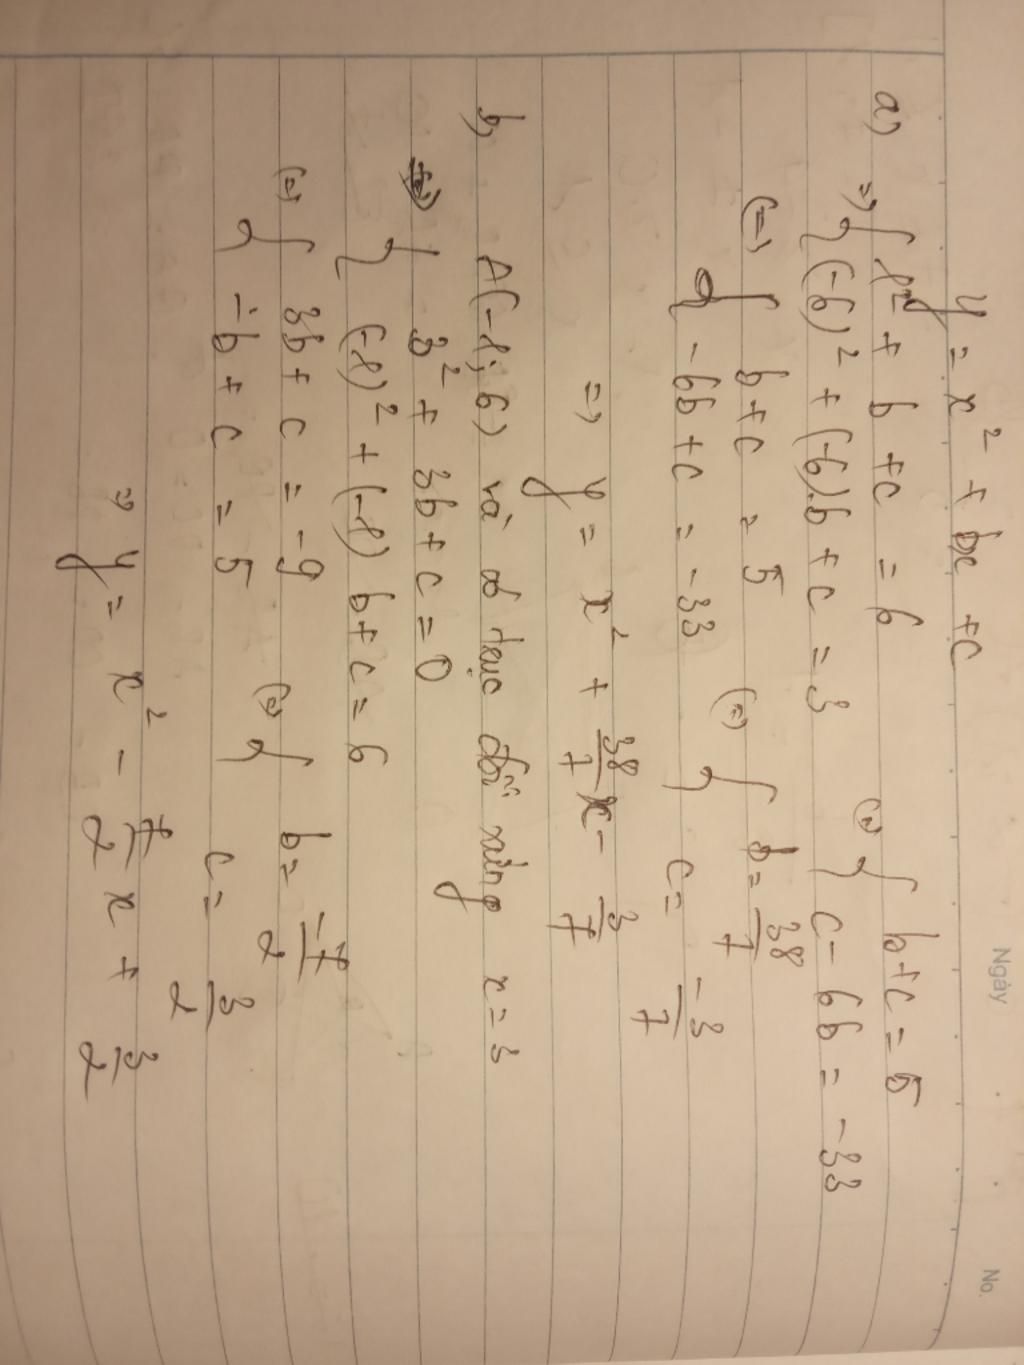 Ngày
No.
y = x² + bx + c
a) => { 1² + b + c = 6 (=) { b + c = 5
(-6)² + (-6).b + c = 3 c - 6b = -33
(=) { b + c = 5 (=) { b = 38/7
-6b + c = -33 c = -3/7
=> y = x² + 38/7 x - 3/7
b) A(-1; 6) và có trục đối xứng x = 3
{ 3² + 3b + c = 0
(-1)² + (-1) b + c = 6
(=) { 3b + c = -9 (=) { b = -7/2
-b + c = 5 c = 3/2
=> y = x² - 7/2 x + 3/2